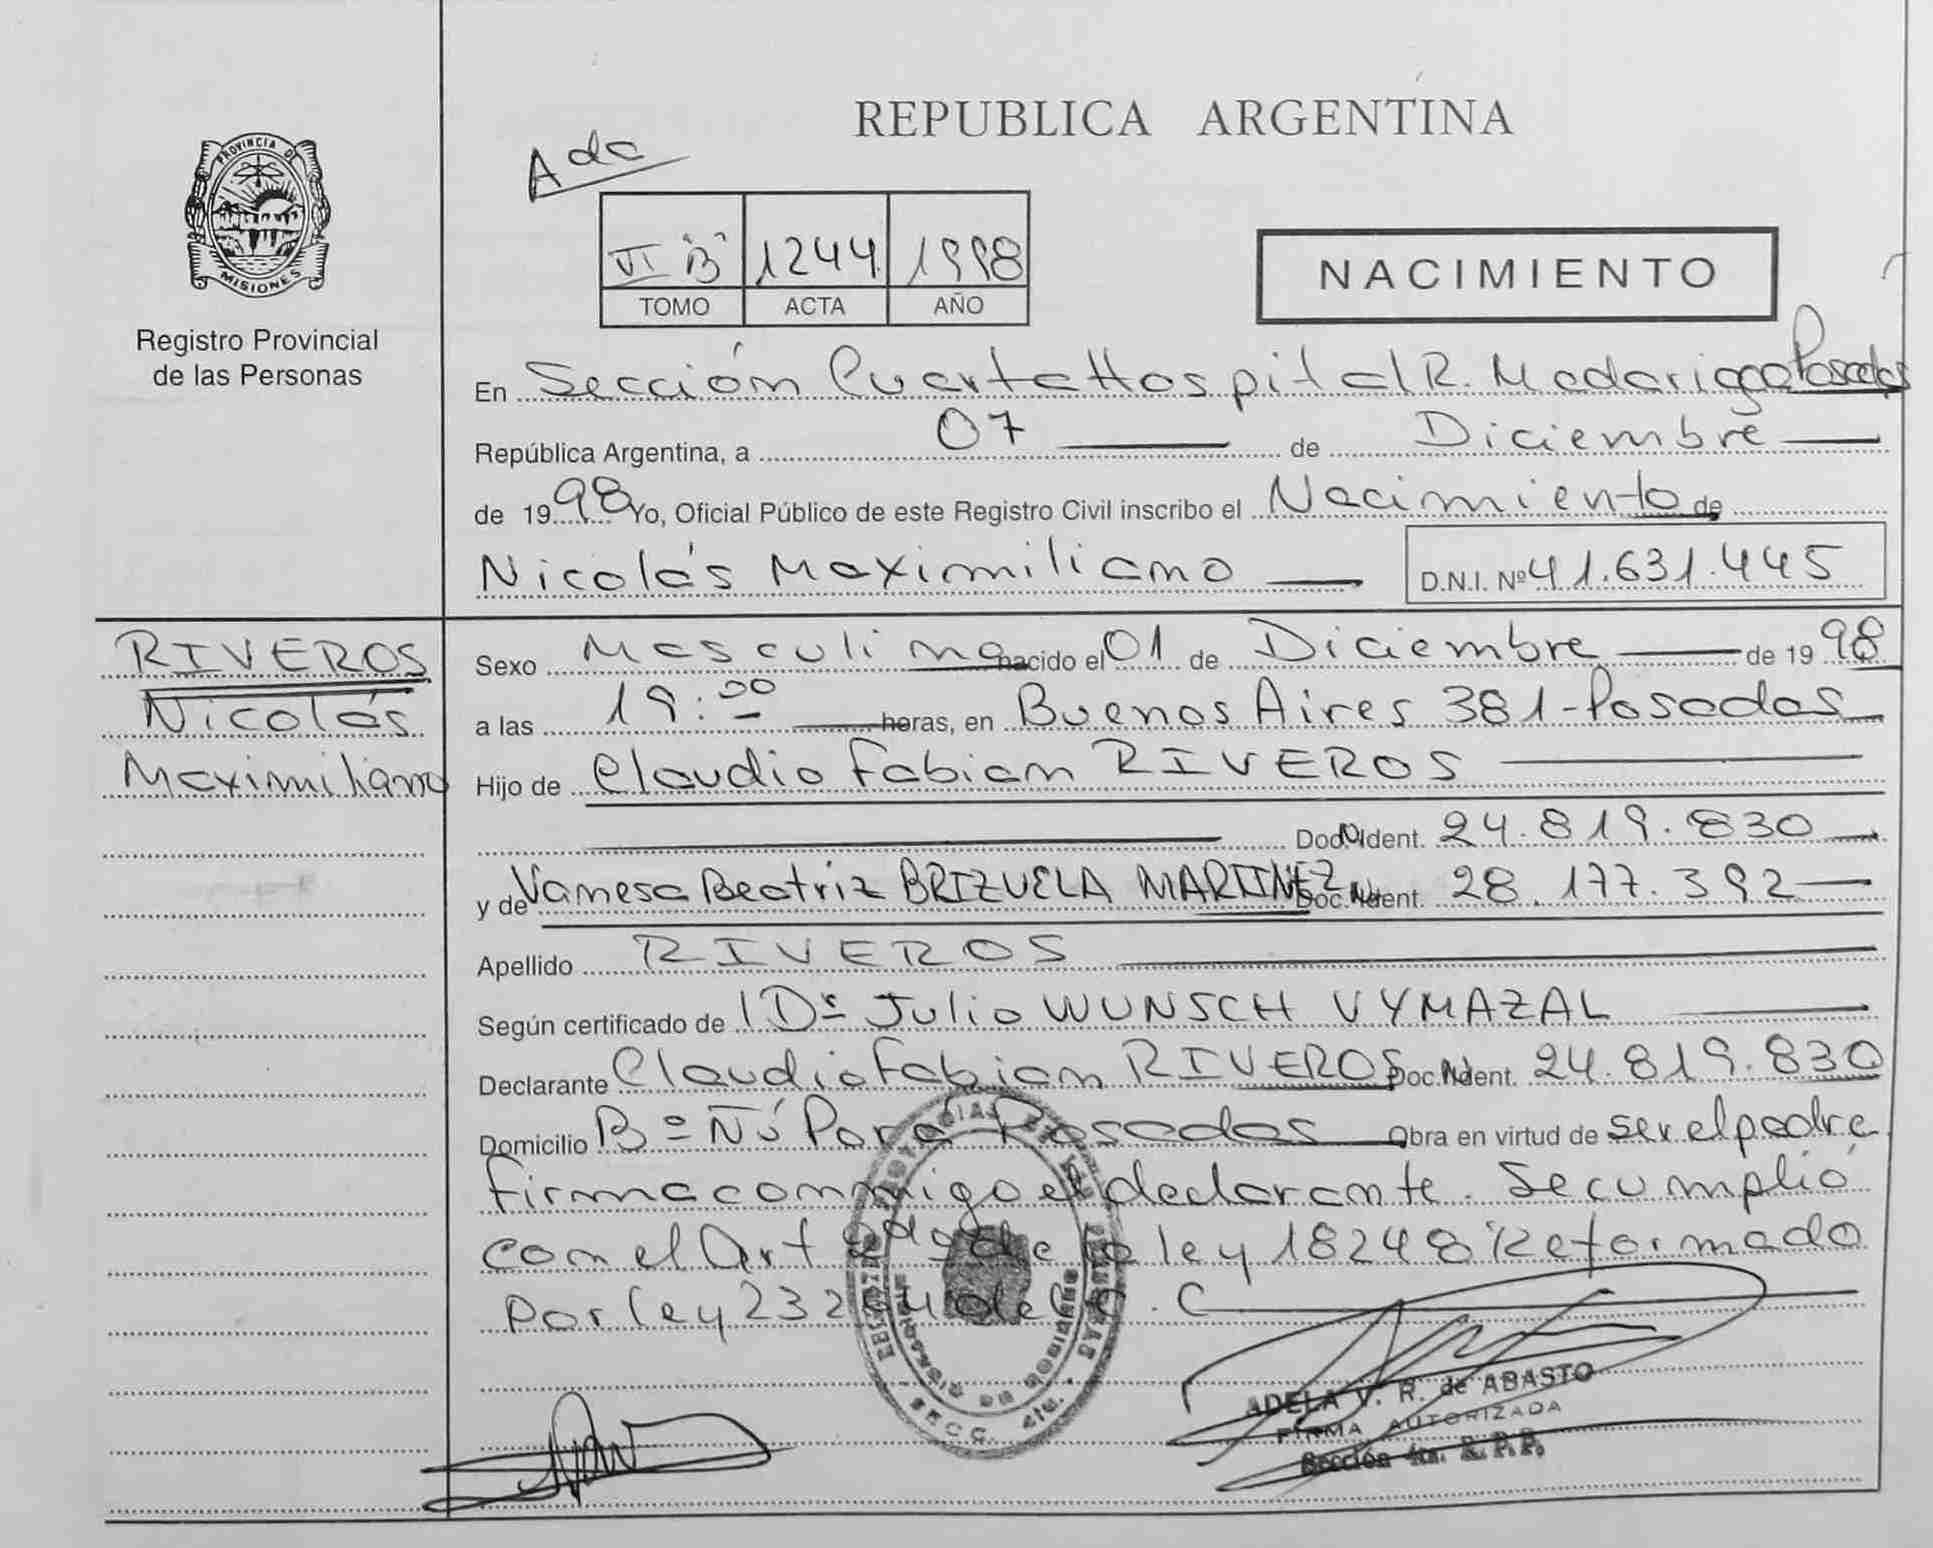 PROVINCIA DE
MISIONES
Registro Provincial
de las Personas
REPUBLICA ARGENTINA
Ada
VI "B" 1244 1998
TOMO ACTA AÑO
NACIMIENTO
En Sección Cuarta Hospital R. Madariaga Posadas
República Argentina, a 07 de Diciembre
de 1998 Yo, Oficial Público de este Registro Civil inscribo el Nacimiento de
Nicolás Maximiliano D.N.I. Nº 41.631.445
RIVEROS
Nicolás
Maximiliano
Sexo Masculino nacido el 01 de Diciembre de 1998
a las 19:00 horas, en Buenos Aires 381-Posadas
Hijo de Claudio Fabian RIVEROS
Doc. Ident. 24.819.830
y de Vanesa Beatriz BRIZUELA MARTINEZ Doc. Ident. 28.177.392
Apellido RIVEROS
Según certificado de Dr Julio WUNSCH VYMAZAL
Declarante Claudio Fabian RIVEROS Doc. Ident. 24.819.830
Domicilio Bº Ñú Porá Posadas Obra en virtud de ser el padre
firma conmigo el declarante. Se cumplió
con el Art de la ley 18248 Reformado
por ley 232 del C.C
ADELA V. R. de ABASTO
FIRMA AUTORIZADA
Sección 4ta. R. P. P.